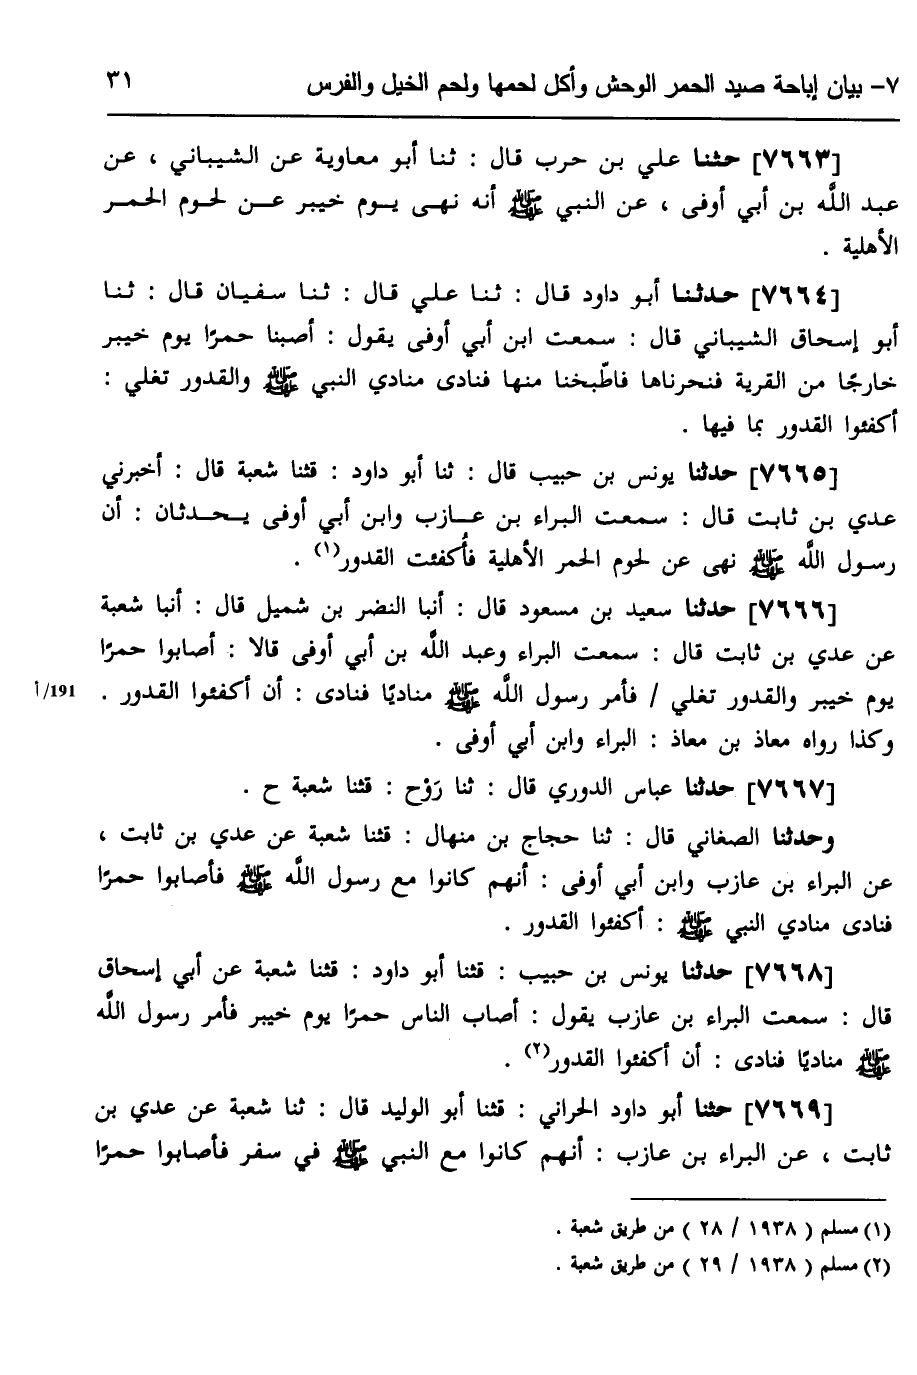 ٧- بيان إباحة صيد الحمر الوحش وأكل لحمها ولحم الخيل والفرس ٣١
[٧٦٦٣] حثنا علي بن حرب قال : ثنا أبو معاوية عن الشيباني ، عن
عبد اللَّه بن أبي أوفى ، عن النبي ﷺ أنه نهى يوم خيبر عن لحوم الحمر
الأهلية .
[٧٦٦٤] حدثنا أبو داود قال : ثنا علي قال : ثنا سفيان قال : ثنا
أبو إسحاق الشيباني قال : سمعت ابن أبي أوفى يقول : أصبنا حمرًا يوم خيبر
خارجًا من القرية فنحرناها فاطّبخنا منها فنادى منادي النبي ﷺ والقدور تغلي :
أكفئوا القدور بما فيها .
[٧٦٦٥] حدثنا يونس بن حبيب قال : ثنا أبو داود : قثنا شعبة قال : أخبرني
عدي بن ثابت قال : سمعت البراء بن عازب وابن أبي أوفى يحدثان : أن
رسول اللَّه ﷺ نهى عن لحوم الحمر الأهلية فأُكفئت القدور(١) .
[٧٦٦٦] حدثنا سعيد بن مسعود قال : أنبا النضر بن شميل قال : أنبا شعبة
عن عدي بن ثابت قال : سمعت البراء وعبد اللَّه بن أبي أوفى قالا : أصابوا حمرًا
يوم خيبر والقدور تغلي / فأمر رسول اللَّه ﷺ مناديًا فنادى : أن أكفئوا القدور . 191/أ
وكذا رواه معاذ بن معاذ : البراء وابن أبي أوفى .
[٧٦٦٧] حدثنا عباس الدوري قال : ثنا رَوْح : قثنا شعبة ح .
وحدثنا الصغاني قال : ثنا حجاج بن منهال : قثنا شعبة عن عدي بن ثابت ،
عن البراء بن عازب وابن أبي أوفى : أنهم كانوا مع رسول اللَّه ﷺ فأصابوا حمرًا
فنادى منادي النبي ﷺ : أكفئوا القدور .
[٧٦٦٨] حدثنا يونس بن حبيب : قثنا أبو داود : قثنا شعبة عن أبي إسحاق
قال : سمعت البراء بن عازب يقول : أصاب الناس حمرًا يوم خيبر فأمر رسول اللَّه
ﷺ مناديًا فنادى : أن أكفئوا القدور(٢) .
[٧٦٦٩] حثنا أبو داود الحراني : قثنا أبو الوليد قال : ثنا شعبة عن عدي بن
ثابت ، عن البراء بن عازب : أنهم كانوا مع النبي ﷺ في سفر فأصابوا حمرًا
(١) مسلم ( ١٩٣٨ / ٢٨ ) من طريق شعبة .
(٢) مسلم ( ١٩٣٨ / ٢٩ ) من طريق شعبة .